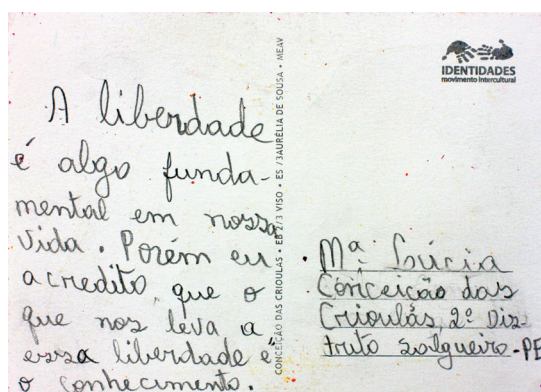 A liberdade
é algo funda-
mental em nossa
vida. Porém eu
acredito que o
que nos leva a
essa liberdade é
o conhecimento.
CONCEIÇÃO DAS CRIOULAS • EB 2/3 VISO • ES /3AURÉLIA DE SOUSA • MEAV
IDENTIDADES
movimento intercultural
Mª Lúcia
Conceição das
Crioulas, 2º Dis-
truto Salgueiro-PE